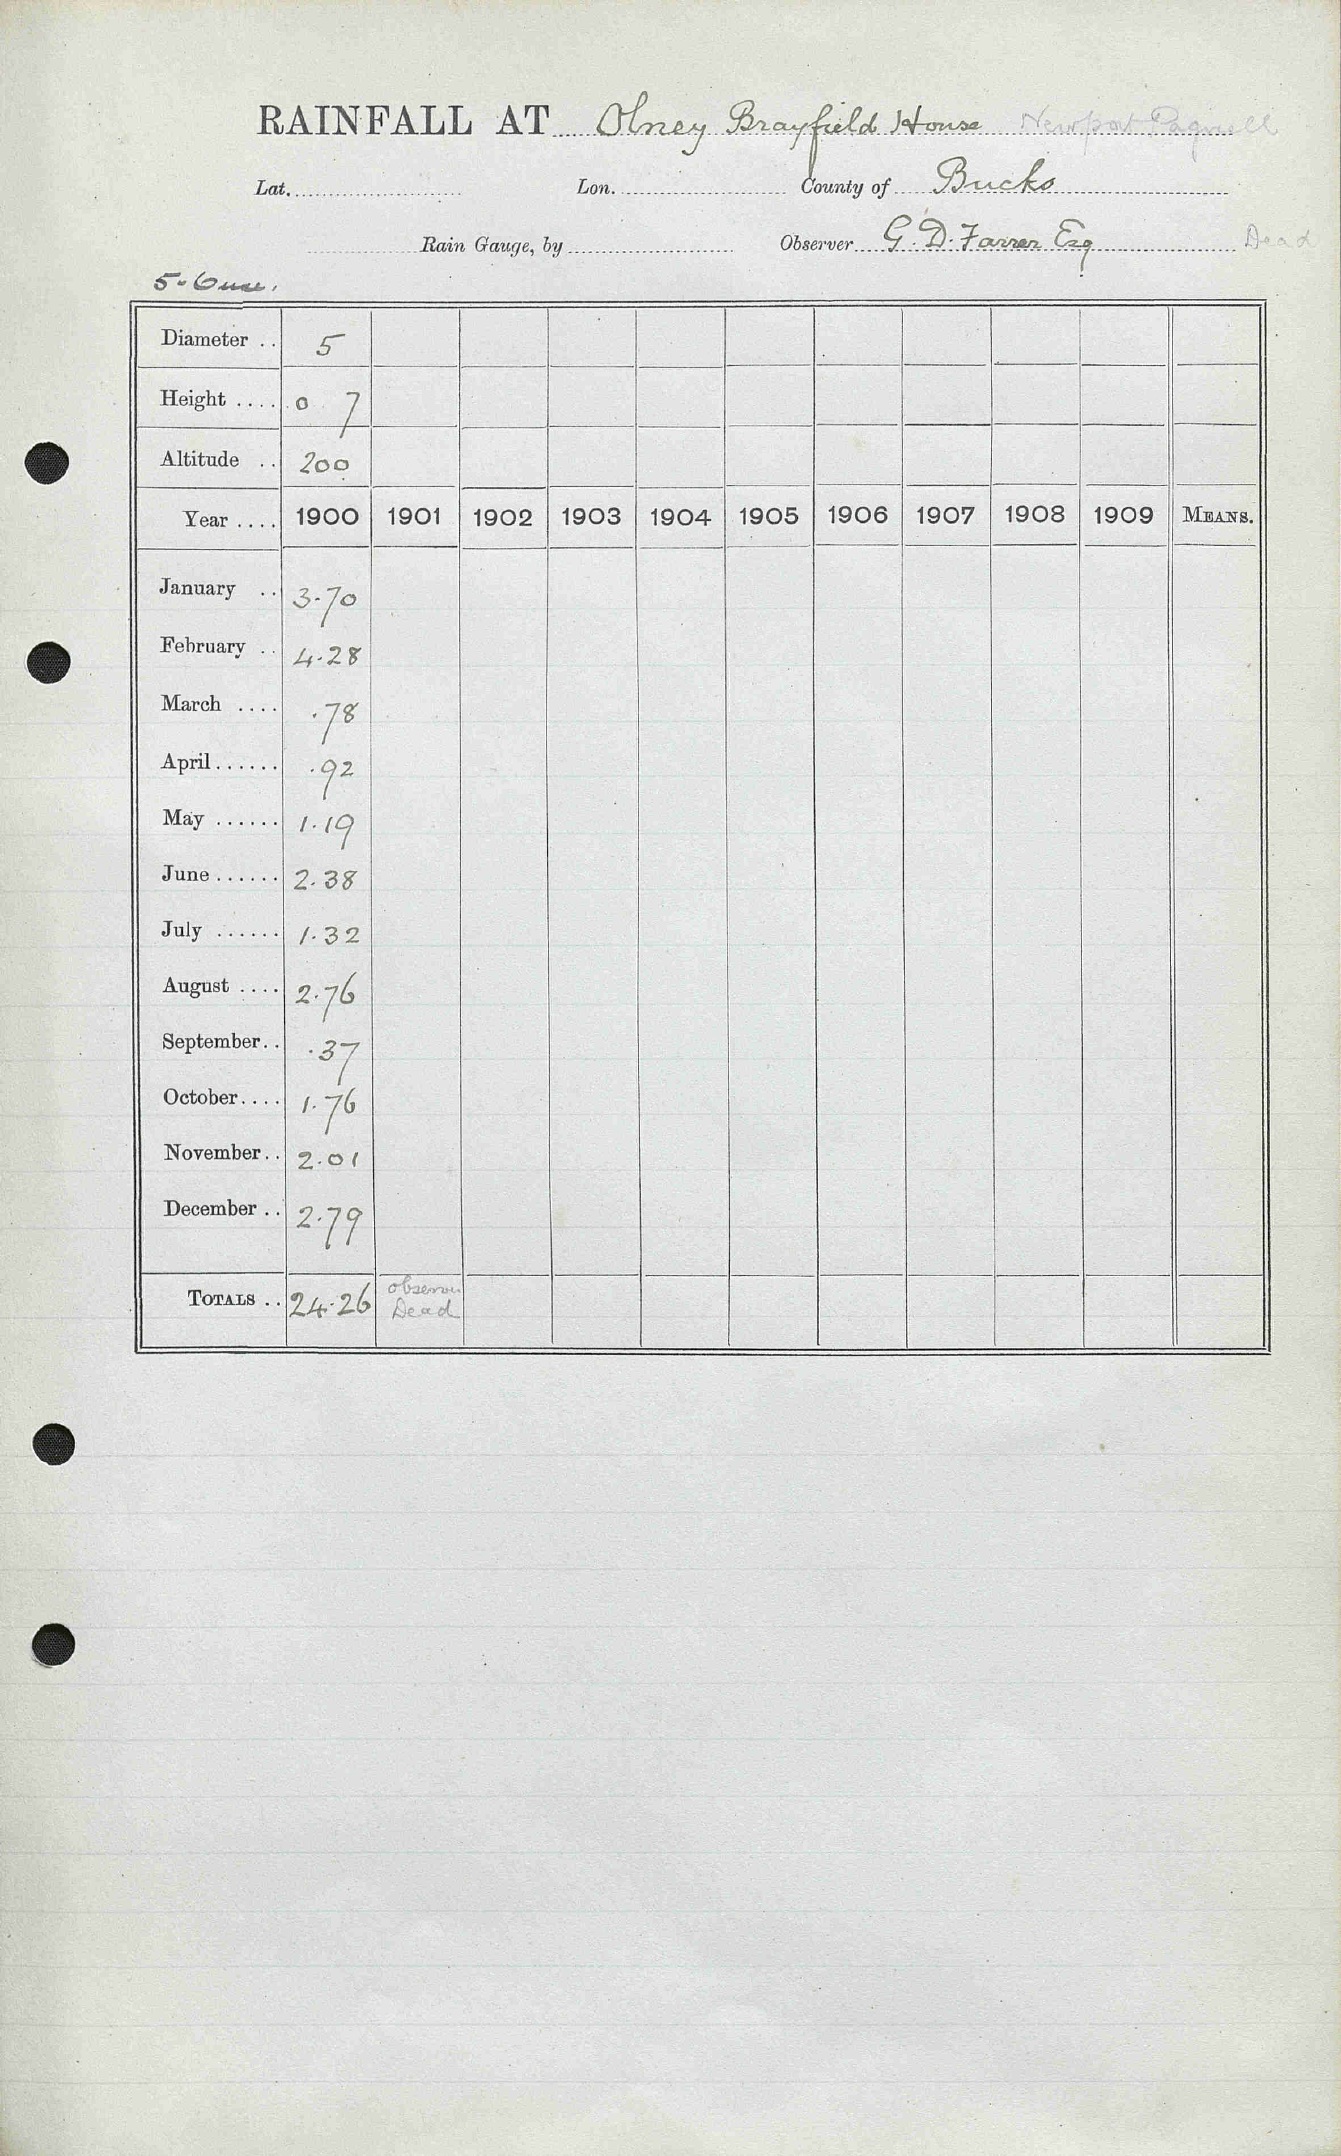 RAINFALL AT Olney Brayfield House Newport Pagnell
Lat. Lon. County of Bucks
Rain Gauge, by Observer G. D. Farrer Esq Dead
5-Ouse.
Diameter .. 5
Height .... 0 7
Altitude .. 200
Year .... 1900 1901 1902 1903 1904 1905 1906 1907 1908 1909 MEANS.
January .. 3.70
February .. 4.28
March .... .78
April ...... .92
May ...... 1.19
June ...... 2.38
July ...... 1.32
August .... 2.76
September .. .37
October .... 1.76
November .. 2.01
December .. 2.79
TOTALS .. 24.26 observer
Dead